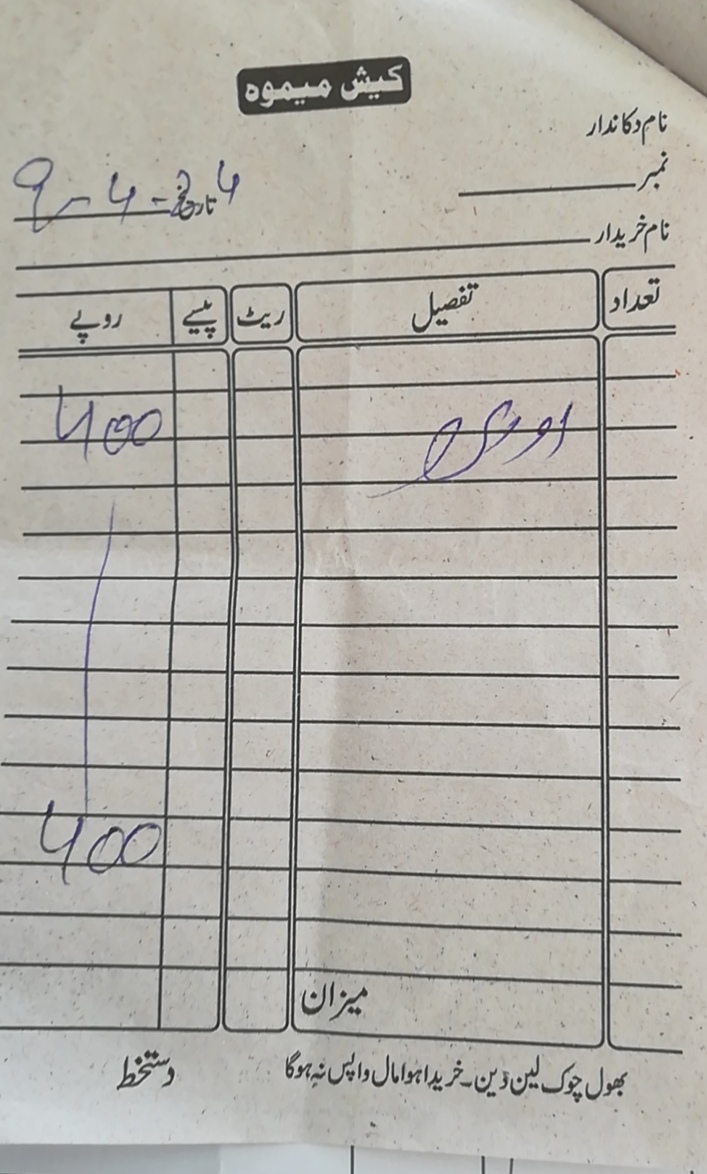 کیش میمو
نام دکاندار
نمبر
تاریخ 9-4-24
نام خریدار
تعداد تفصیل ریٹ پیسے روپے
400
400
میزان
بھول چوک لین دین۔ خریدا ہوا مال واپس نہ ہوگا
دستخط